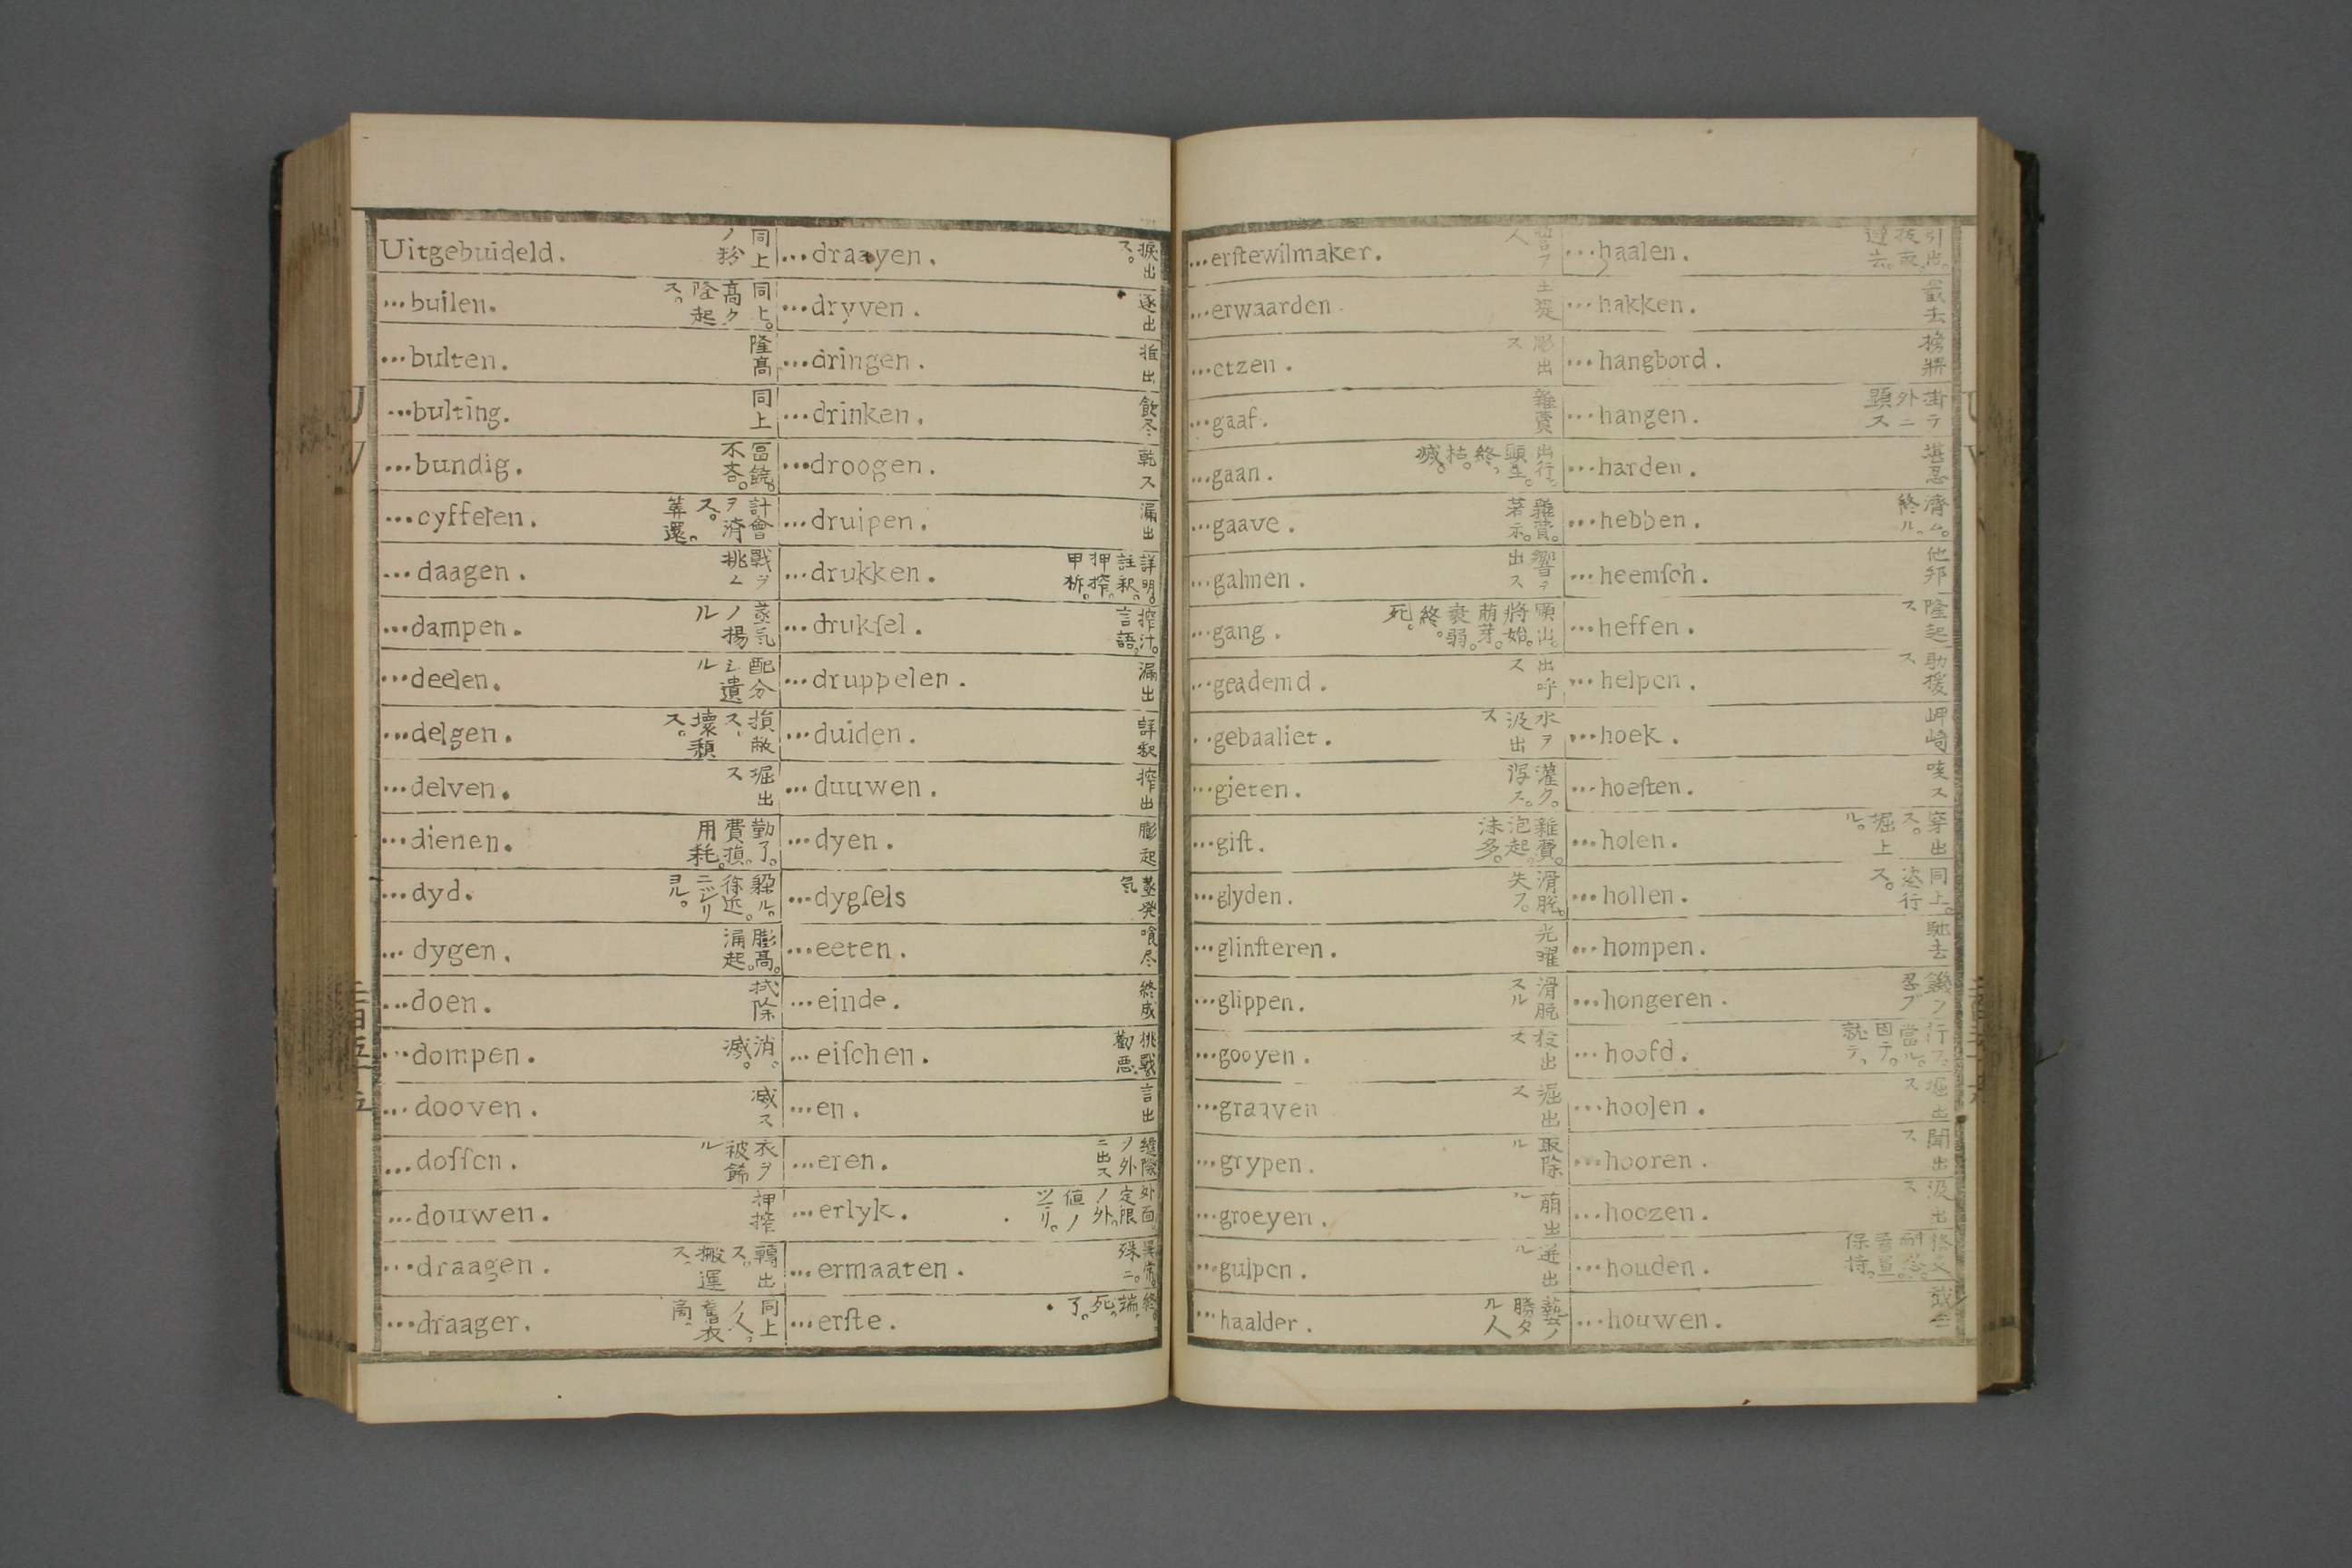 Uitgebuideld. 同上ノ粉
...builen. 同上。高ク隆起ス。
...bulten. 隆高
...bulting. 同上
...bundig. 冨饒。不吝。
...cyfferen. 計會ヲ済ス。筭還。
...daagen. 戰ヲ挑ム
...dampen. 蒸気ノ揚ル
...deelen. 配分シ遺ル
...delgen. 損敝ス、壊頽ス。
...delven. 堀出ス
...dienen. 勤了。費損。用耗。
...dyd. 躱ル。徐近。ニジリヨル。
...dygen. 膨高。涌起。
...doen. 拭除
...dompen. 消。滅。
...dooven. 滅ス
...dossen. 衣ヲ被餙ル
...douwen. 押搾
...draagen. 轉出ス。搬運ス。
...draager. 同上ノ人。舊衣商。
...draayen. 捩出ス。
...dryven. 逐出
...dringen. 推出
...drinken. 飲尽
...droogen. 乾ス
...druipen. 漏出
...drukken. 詳明。註釈。押搾。甲柝。
...drukſel. 搾汁。言語。
...druppelen. 漏出
...duiden. 詳釈
...duuwen. 搾出
...dyen. 膨起
...dygſels 蒸発気
...eeten. 喰尽
...einde. 終成
...eiſchen. 挑戰。勸悪。
...en. 言出
...eren. 縫際ヲ外ニ出ス
...erlyk. 外面。定限ノ外。値ノツモリ。
...ermaaten. 異常。殊ニ。
...erſte. 終。端。死。了。
...erſtewilmaker.
...erwaarden.
...etzen. 彫出ス
...gaaf. 雜費
...gaan. 出行。顕至。終。枯。滅。
...gaave. 雜費。著示。
...galmen. 響ヲ出ス
...gang. 顕出。將始。萌芽。衰弱。終。死。
...geademd. 出呼ス
...gebaaliet. 水ヲ汲出ス
...gieten. 灌ク。瀉ス。
...gift. 雜費。泡起。沫多。
...glyden. 滑脱。失フ。
...glinſteren. 光曜
...glippen. 滑脱スル
...gooyen. 投出ス
...graaven 堀出ス
...grypen. 取除ル
...groeyen. 萌出ル
...gulpen. 迸出ル
...haalder. 藝ノ勝タル人
...haalen. 引出。抜取。遁去。
...hakken. 截去
...hangbord. 榜牌
...hangen. 掛テ外ニ顕ス
...harden. 堪忍
...hebben. 濟ム。終ル。
...heemſch. 他邦
...heffen. 隆起ス
...helpen. 助援ス
...hoek. 岬崎
...hoeſten. 咳ス
...holen. 穿出ス。堀上ル。
...hollen. 同上。恣行ス。
...hompen. 馳去
...hongeren. 饑ヲ忍ブ
...hoofd. 行フ。當ル。因テ。就テ。
...hoolen. 堀出ス
...hooren. 聞出ス
...hoozen. 汲出ス
...houden. 保持。
...houwen.